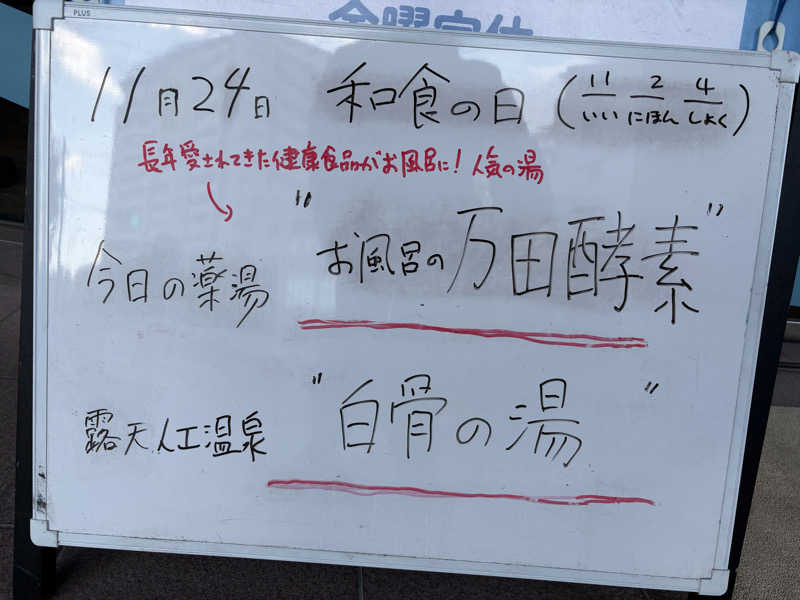 金曜定休
PLUS
11月24日 和食の日 (11 2 4)
いい にほん しょく
長年愛されてきた健康食品がお風呂に！人気の湯
今日の薬湯 "お風呂の万田酵素"
露天人工温泉 "白骨の湯"